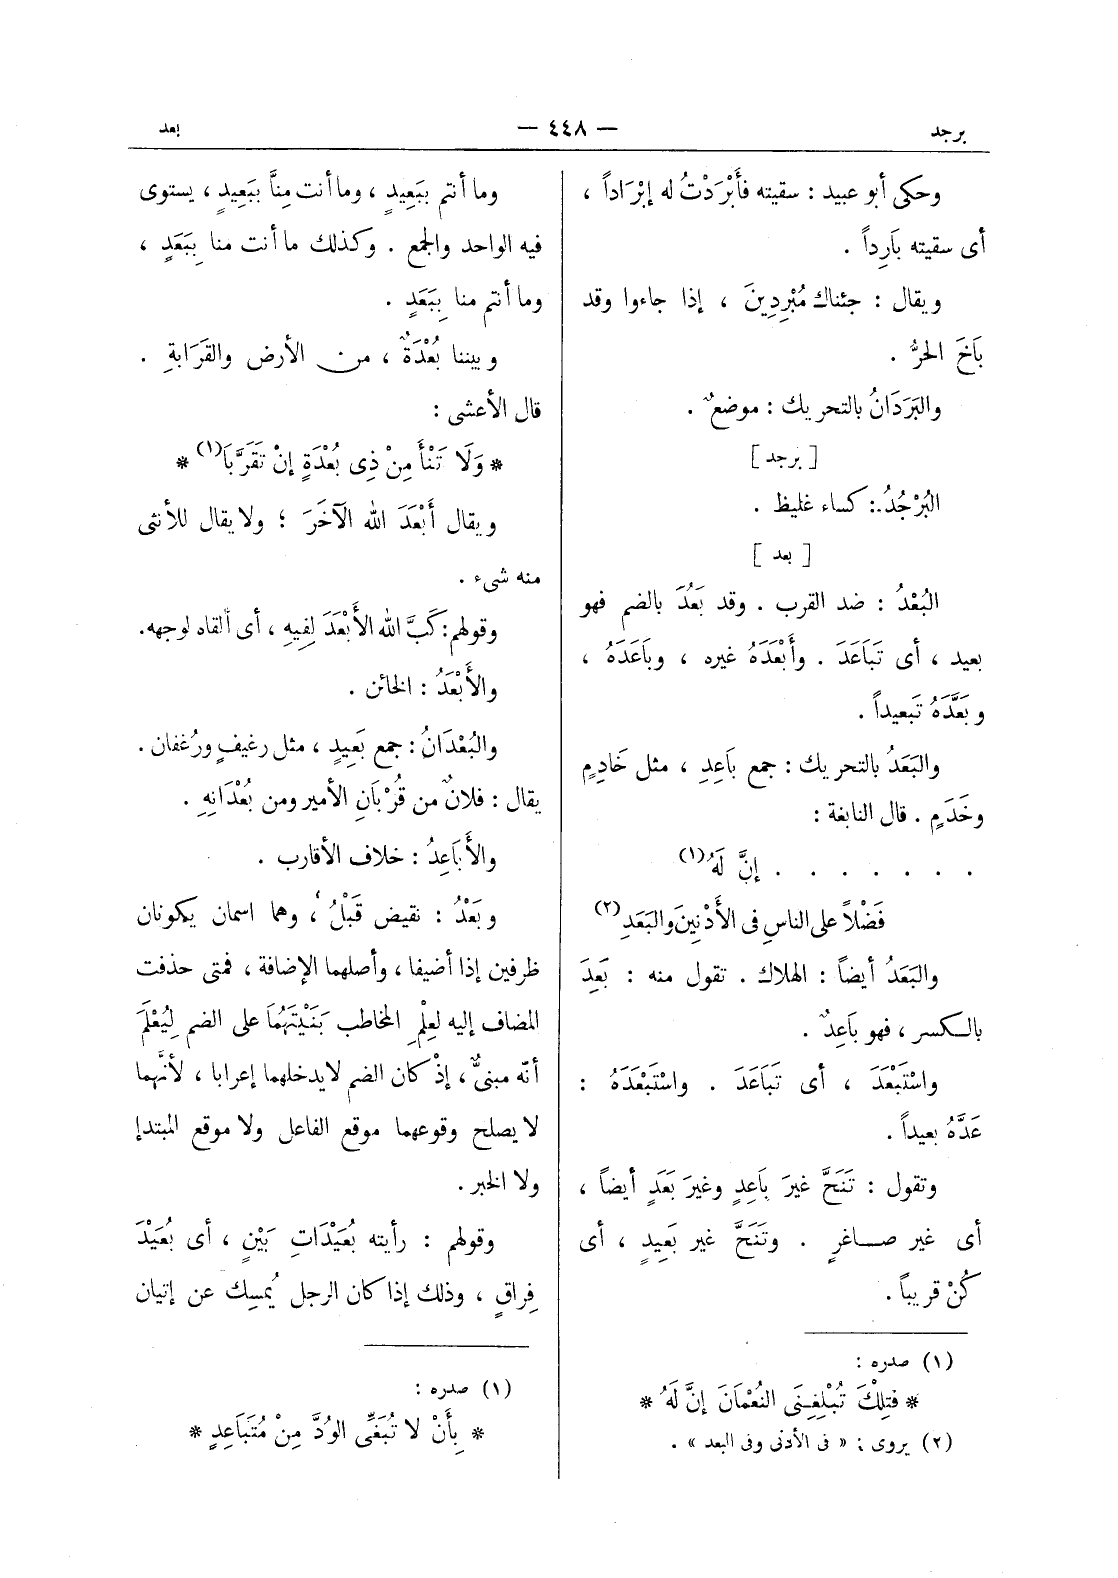 برجد
— ٤٤٨ —
بعد
وحكى أبو عبيد : سقيته فَأَبْرَدْتُ له إبْرَاداً ،
أى سقيته بَارِداً .
ويقال : جئناك مُبْرِدِينَ ، إذا جاءوا وقد
بَاخَ الحرُّ .
والبَرَدَانُ بالتحريك : موضعٌ .
[ برجد ]
البُرْجُدُ : كساء غليظ .
[ بعد ]
البُعْدُ : ضد القرب . وقد بَعُدَ بالضم فهو
بعيد ، أى تَبَاعَدَ . وأَبْعَدَهُ غيره ، وبَاعَدَهُ ،
وبَعَّدَهُ تَبعيداً .
والبَعَدُ بالتحريك : جمع بَاعِدِ ، مثل خَادِمٍ
وخَدَمٍ . قال النابغة :
. . . . . . . إنَّ لَهُ (١)
فَضْلاً على الناسِ فى الأَدْنِينَ والبَعَدِ (٢)
والبَعَدُ أيضاً : الهلاك . تقول منه : بَعِدَ
بالكسر ، فهو بَاعِدٌ .
واسْتَبْعَدَ ، أى تَبَاعَدَ . واسْتَبْعَدَهُ :
عَدَّهُ بعيداً .
وتقول : تَنَحَّ غيرَ بَاعِدٍ وغيرَ بَعَدٍ أيضاً ،
أى غير صاغرٍ . وتَنَحَّ غير بَعيدٍ ، أى
كُنْ قريباً .
(١) صدره :
* فتِلْكَ تُبْلِغِنَى النُعْمَانَ إنَّ لَهُ *
(٢) يروى : « فى الأدنى وفى البعد » .
وما أنتم ببَعِيدٍ ، وما أنت مِنَّا ببَعِيدٍ ، يستوى
فيه الواحد والجمع . وكذلك ما أنت منا بِبَعَدٍ ،
وما أنتم منا بِبَعَدٍ .
وبيننا بُعْدَةٌ ، من الأرض والقَرَابةِ .
قال الأعشى :
* وَلَا تَنْأَ مِنْ ذِى بُعْدَةٍ إنْ تَقَرَّبَا (١) *
ويقال أَبْعَدَ الله الآخَرَ ؛ ولا يقال للأنثى
منه شىء .
وقولهم : كَبَّ الله الأَبْعَدَ لِفِيهِ ، أى ألقاه لوجهه.
والأَبْعَدُ : الخائن .
والبُعْدَانُ : جمع بَعِيدٍ ، مثل رغيفٍ ورُغفان .
يقال : فلانٌ من قُرْبَانِ الأمير ومن بُعْدَانِهِ .
والأَبَاعِدُ : خلاف الأقارب .
وبَعْدُ : نقيض قَبْلُ ، وهما اسمان يكونان
ظرفين إذا أضيفا ، وأصلهما الإضافة ، فمتى حذفت
المضاف إليه لعِلْمِ المخاطب بَنَيْتَهُمَا على الضم لِيُعْلَمَ
أنّه مبنىٌّ ، إذْ كان الضم لايدخلهما إعرابا ، لأنَّهما
لا يصلح وقوعهما موقع الفاعل ولا موقع المبتدإ
ولا الخبر .
وقولهم : رأيته بُعَيْدَاتِ بَيْنٍ ، أى بُعَيْدَ
فِراقٍ ، وذلك إذا كان الرجل يُمسِك عن إتيان
(١) صدره :
* بِأَنْ لا تُبَغَّى الوُدَّ مِنْ مُتَبَاعِدٍ *